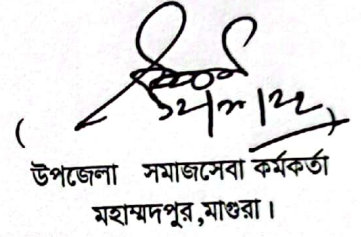 (                    )
উপজেলা সমাজসেবা কর্মকর্তা
মহাম্মদপুর,মাগুরা।